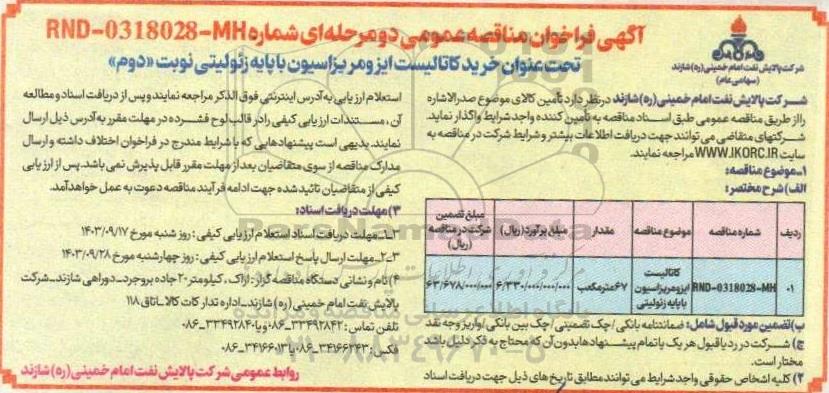 آگهی فراخوان مناقصه عمومی دو مرحله‌ای شماره RND-0318028-MH
تحت عنوان خرید کاتالیست ایزومریزاسیون با پایه زئولیتی نوبت «دوم»
شرکت پالایش نفت امام خمینی (ره) شازند
(سهامی عام)
شرکت پالایش نفت امام خمینی (ره) شازند در نظر دارد تامین کالای موضوع صدرالاشاره
را از طریق مناقصه عمومی طبق اسناد مناقصه به تأمین کننده واجد شرایط واگذار نماید.
شرکتهای متقاضی می توانند جهت دریافت اطلاعات بیشتر و شرایط شرکت در مناقصه به
سایت WWW.IKORC.IR مراجعه نمایند.
۱_موضوع مناقصه:
الف) شرح مختصر:
ردیف	شماره مناقصه	موضوع مناقصه	مقدار	مبلغ برآورد (ریال)	مبلغ تضمین شرکت در مناقصه (ریال)
۰۱	RND-0318028-MH	کاتالیست ایزومریزاسیون با پایه زئولیتی	۶۷ مترمکعب	۶/۳۳۰/۰۰۰/۰۰۰/۰۰۰	۶۳/۶۷۸/۰۰۰/۰۰۰
ب) تضمین مورد قبول شامل: ضمانتنامه بانکی / چک تضمینی / چک بین بانکی / واریز وجه نقد
ج) شرکت در رد یا قبول هر یک یا تمام پیشنهادها بدون آن که محتاج به ذکر دلیل باشد
مختار است.
۲) کلیه اشخاص حقوقی واجد شرایط می توانند مطابق تاریخ های ذیل جهت دریافت اسناد
استعلام ارزیابی به آدرس اینترنتی فوق الذکر مراجعه نمایند و پس از دریافت اسناد و مطالعه
آن، مستندات ارزیابی کیفی را در قالب لوح فشرده در مهلت مقرر به آدرس ذیل ارسال
نمایند. بدیهی است پیشنهادهایی که با شرایط مندرج در فراخوان اختلاف داشته و ارسال
مدارک مناقصه از سوی متقاضیان بعد از مهلت مقرر قابل پذیرش نمی باشد. پس از ارزیابی
کیفی از متقاضیان تائید شده جهت ادامه فرآیند مناقصه دعوت به عمل خواهد آمد.
۳) مهلت دریافت اسناد:
۱_۳_مهلت دریافت اسناد استعلام ارزیابی کیفی: روز شنبه مورخ ۱۴۰۳/۰۹/۱۷
۲_۳_مهلت ارسال پاسخ استعلام ارزیابی کیفی: روز چهارشنبه مورخ ۱۴۰۳/۰۹/۲۸
۴) نام و نشانی دستگاه مناقصه گزار: اراک، کیلومتر ۲۰ جاده بروجرد_دوراهی شازند_شرکت
پالایش نفت امام خمینی (ره) شازند_اداره تدارکات کالا_اتاق ۱۱۸
تلفن تماس: ۳۳۴۹۲۸۴۲_۰۸۶ و یا ۳۳۴۹۲۸۴۰_۰۸۶
فکس: ۳۴۱۶۶۲۴۳_۰۸۶ یا ۳۴۱۶۶۰۱۳_۰۸۶
روابط عمومی شرکت پالایش نفت امام خمینی (ره) شازند